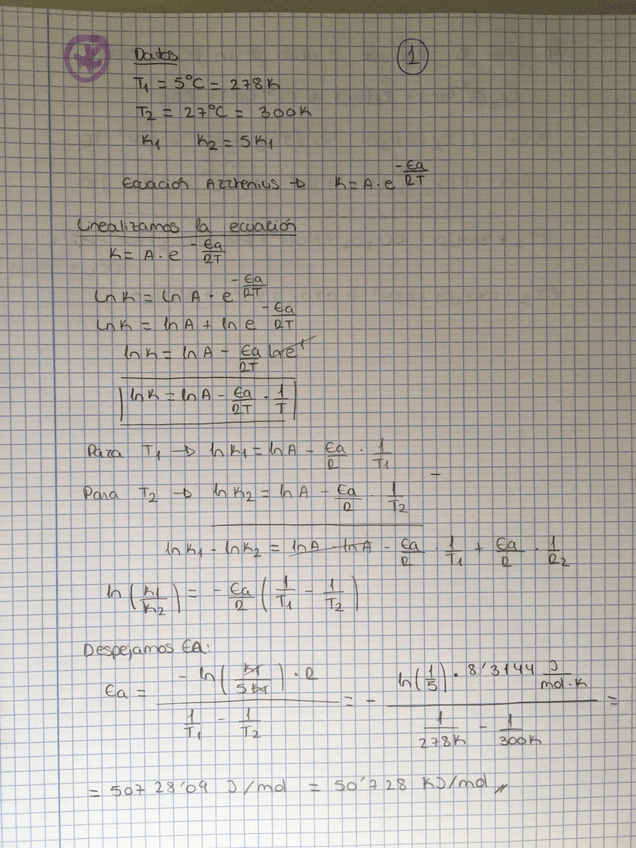 Datos
1
T1 = 5ºC = 278K
T2 = 27ºC = 300K
K1 K2 = 5K1
Ecuación Arrhenius → K = A·e^(-Ea/RT)
Linealizamos la ecuación
K = A·e^(-Ea/RT)
ln K = ln A · e^(-Ea/RT)
ln K = ln A + ln e^(-Ea/RT)
ln K = ln A - Ea/RT ln e 1
ln K = ln A - Ea/RT · 1/T
Para T1 → ln K1 = ln A - Ea/R · 1/T1
-
Para T2 → ln K2 = ln A - Ea/R · 1/T2
ln K1 - ln K2 = ln A - ln A - Ea/R · 1/T1 + Ea/R · 1/R2
ln (K1/K2) = - Ea/R (1/T1 - 1/T2)
Despejamos EA:
Ea = (- ln (K1/5K1) · R) / (1/T1 - 1/T2) = - (ln (1/5) · 8'3144 J/mol·K) / (1/278K - 1/300K) =
= 50728'09 J/mol = 50'728 KJ/mol